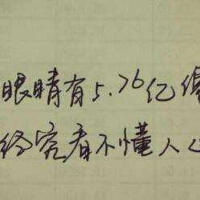 眼睛有5.76亿
终究看不懂人